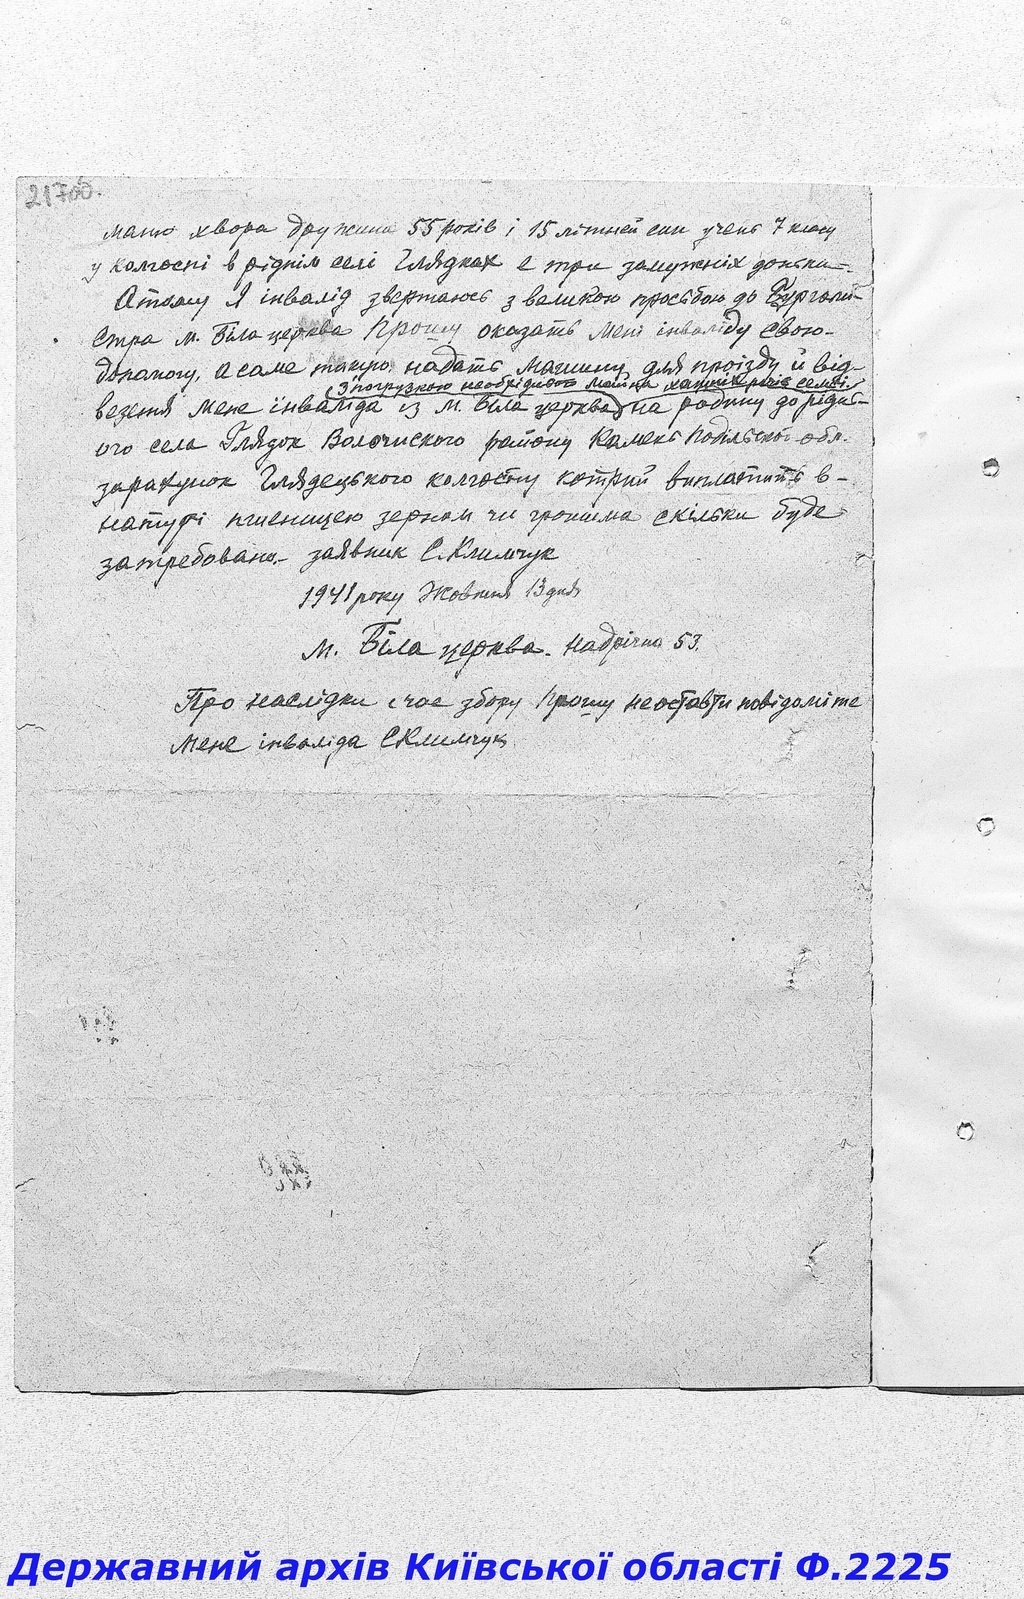 217об.
маю хвора дружина 55 років і 15 літней син учень 7 класу
у колгоспі в ріднім селі Глядках є три замужніх доньки.
Атому Я інвалід звертаюсь з великою просьбою до Бургомі-
стра м. Біла церква Прошу оказать мені інваліду свою-
допомогу, а саме такую, надать машину для проїзду й від-
з погрузкою необхідного майна хатніх річів семьї
везення мене інваліда із м. Біла церква на родину до рідн-
ого села Глядок Волочиского району Камень Подільської обл.
зарахунок Глядецького колгоспу котрий виплатить в-
натурі пшеницею зерном чи грошима скільки буде
затребовано.- заявник С. Климчук
1941 року Жовтня 13 дня
м. Біла церква. Надрічна 53.
Про наслідки і час збору Прошу неоставти повідоміте
мене інваліда С Климчук
Державний архів Київської області Ф.2225